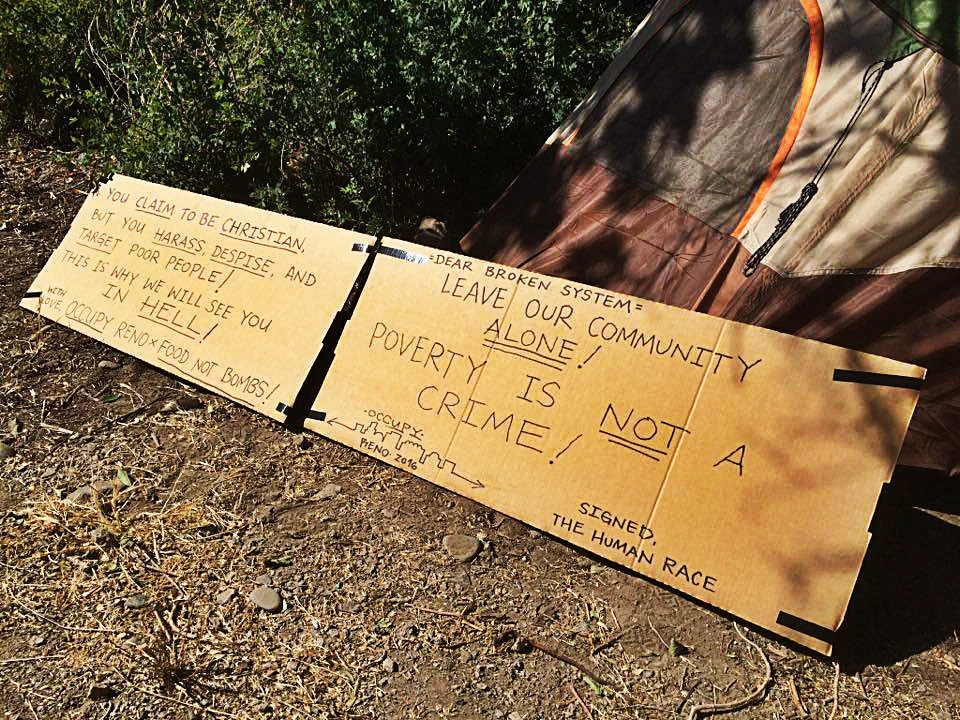 YOU CLAIM TO BE CHRISTIAN,
BUT YOU HARASS, DESPISE, AND
TARGET POOR PEOPLE!
THIS IS WHY WE WILL SEE YOU
IN HELL!
WITH
LOVE, OCCUPY RENO × FOOD NOT BOMBS!
=DEAR BROKEN SYSTEM=
LEAVE OUR COMMUNITY
ALONE!
POVERTY IS NOT A
CRIME!
·OCCUPY·
RENO·2016
SIGNED,
THE HUMAN RACE